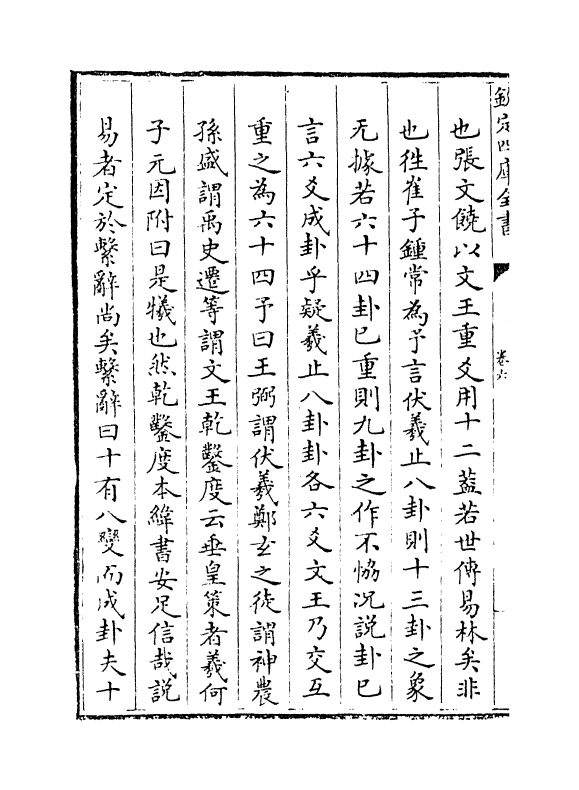 欽定四庫全書
卷六
也張文饒以文王重爻用十二蓋若世傳易林矣非
也徃崔子鍾常為予言伏羲止八卦則十三卦之象
无據若六十四卦已重則九卦之作不恊况説卦已
言六爻成卦乎疑羲止八卦卦各六爻文王乃交互
重之為六十四予曰王弼謂伏羲鄭玄之徒謂神農
孫盛謂禹史遷等謂文王乾鑿度云垂皇策者羲何
子元因附曰是犧也然乾鑿度本緯書安足信哉説
易者定於繫辭尚矣繫辭曰十有八變而成卦夫十